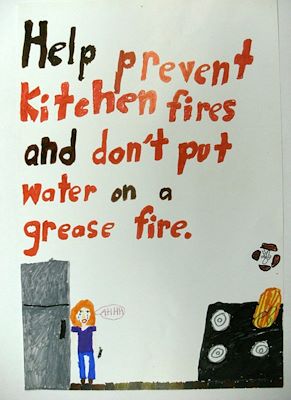 Help prevent
Kitchen fires
and don't put
water on a
grease fire.
AHHH